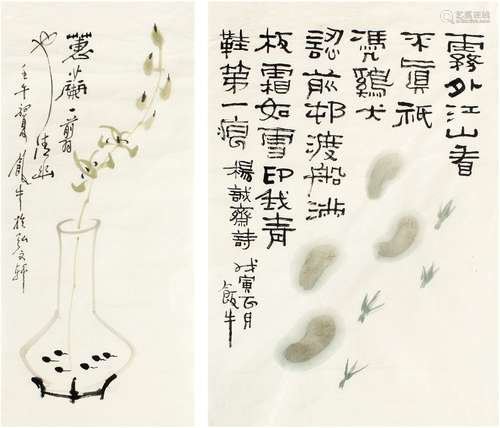 霧外江山看
不真祇
憑鷄犬
認前邨渡船滿
板霜如雪印我青
鞋第一痕 楊誠齋詩
戊寅正月
飯牛
蕙蘭一翦
清幽
壬午初夏飯牛於弘文軒